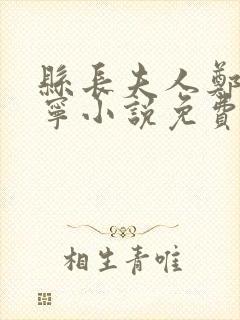 縣長夫人鄭
寧小說免費
相生青唯